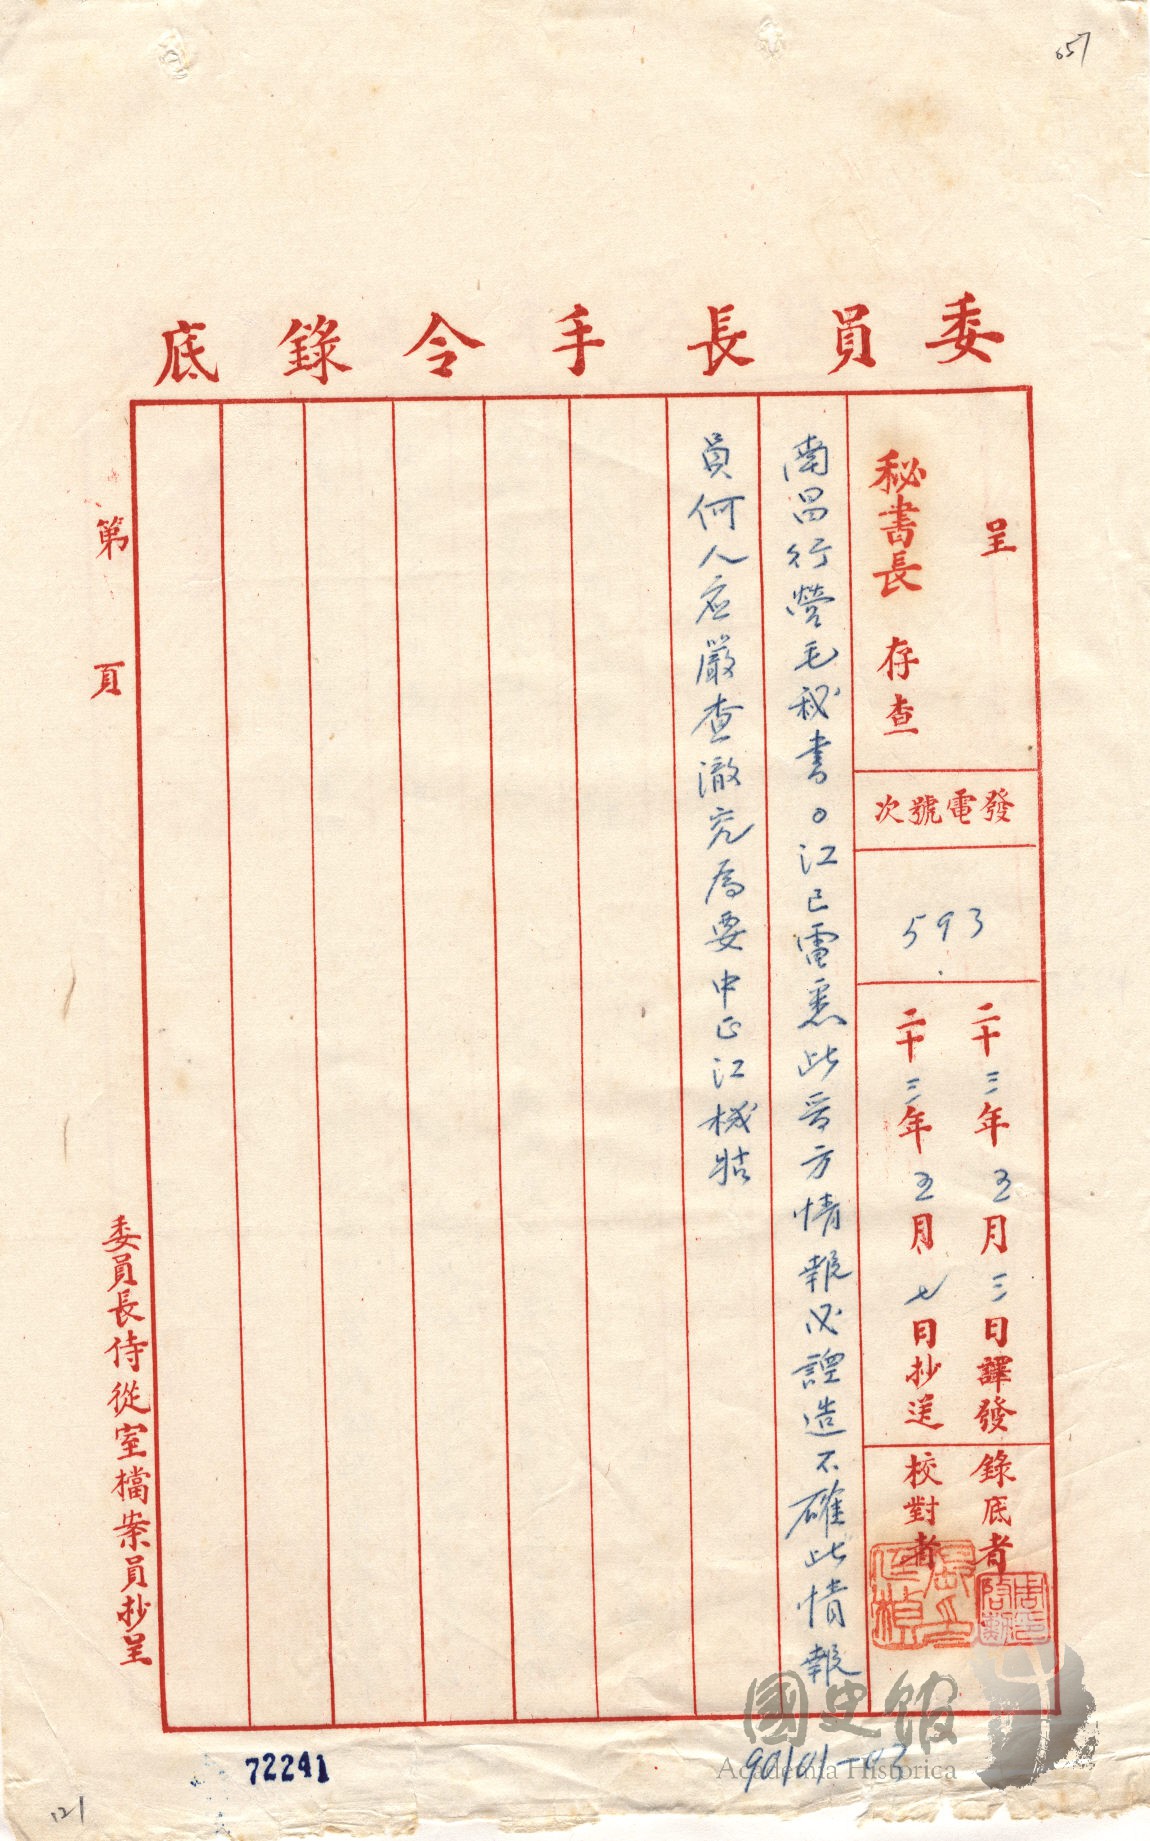 657
委員長手令錄底
呈
秘書長 存查
發電號次
593
二十三年五月三日譯發
二十三年五月七日抄送
錄底者
校對者
南昌行營毛秘書。江已電悉此晉方情報必謹造不確此情報
員何人应嚴查澈究為要中正江機牯
第 頁
委員長侍從室檔案員抄呈
國史館
Academia Historica
90101-03
72241
121